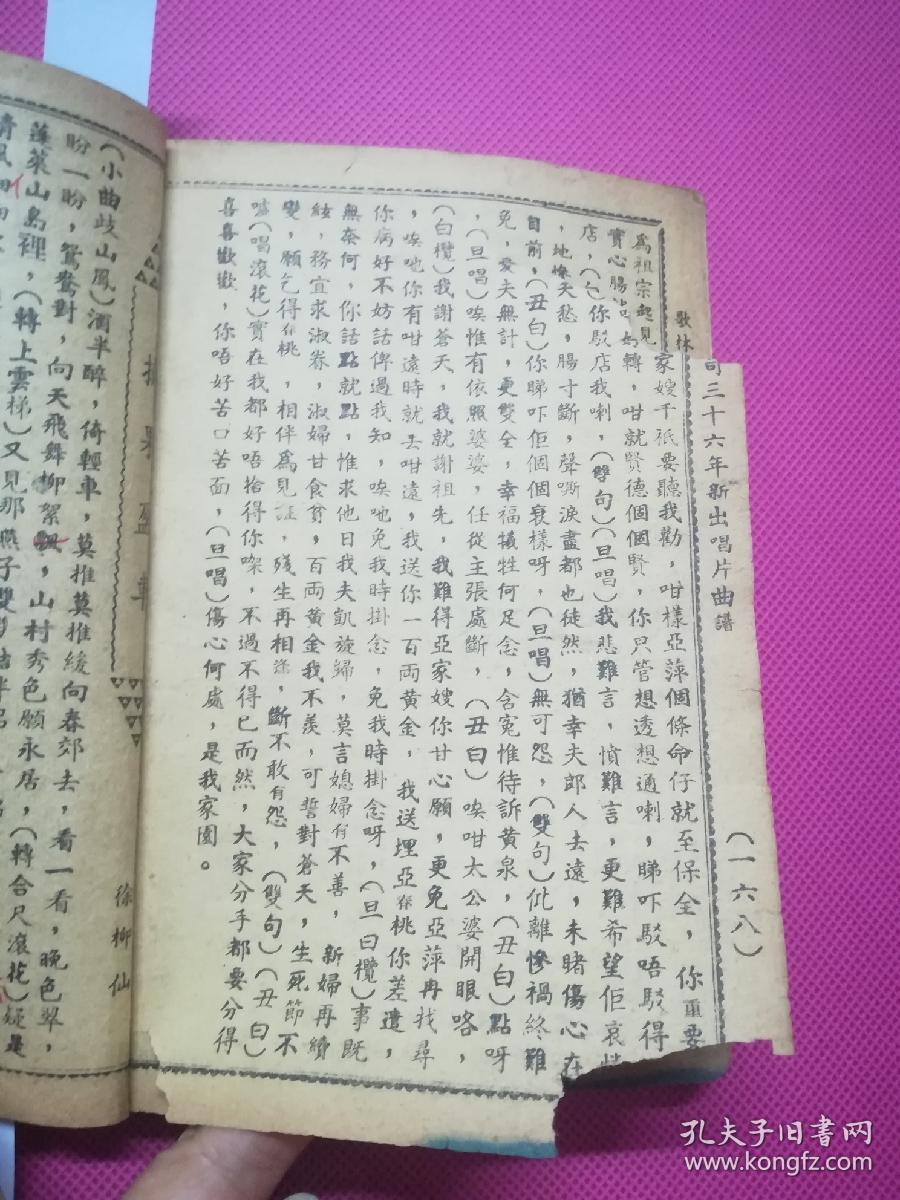 歌林
司三十六年新出唱片曲譜
（一六八）
為祖宗起見
家嫂千祇要聽我勸，咁樣亞萍個條命仔就至保全，你重要
實心腸
轉，咁就賢德個個賢，你只管想透想通喇，睇吓駁唔駁得
店，（
你駁店我喇，（雙句）（旦唱）我悲難言，憤難言，更難希望佢哀
，地慘天愁，腸寸斷，聲嘶淚盡都也徒然，猶幸夫郎人去遠，未睹傷心在
目前，（丑白）你睇吓佢個個衰樣呀，（旦唱）無可怨，（雙句）仳離慘禍終難
免，愛夫無計，更雙全，幸福犧牲何足念，含冤惟待訴黃泉，（丑白）點呀
，（旦唱）唉惟有依照婆婆，任從主張處斷，（丑白）唉咁太公婆開眼咯，
（白欖）我謝蒼天，我就謝祖先，我難得亞家嫂你甘心願，更免亞萍再找尋
，唉吔你有咁遠時就去咁遠，我送你一百両黃金，我送埋亞春桃你差遣，
你病好不妨話俾過我知，唉吔免我時掛念，免我時掛念呀，（旦白欖）事既
無奈何，你話點就點，惟求他日我夫凱旋歸，莫言媳婦有不善，新婦再續
絃，務宜求淑眷，淑婦甘食貧，百両黃金我不羨，可誓對蒼天，生死節不
變，願乞得春桃，相伴為見証，殘生再相逢，斷不敢有怨，（雙句）（丑白）
嘻（唱滾花）實在我都好唔捨得你㗎，不過不得已而然，大家分手都要分得
喜喜歡歡，你唔好苦口苦面，（旦唱）傷心何處，是我家園。
徐柳仙
（小曲歧山鳳）酒半醉，倚輕車，莫推莫推緩向春郊去，看一看，晚色翠，
盼一盼，鴛鴦對，向天飛舞柳絮飄，山村秀色願永居，（轉合尺滾花）疑是
蓬萊山島裡，（轉上雲梯）又見那燕子雙
清風細細
孔夫子旧书网
www.kongfz.com